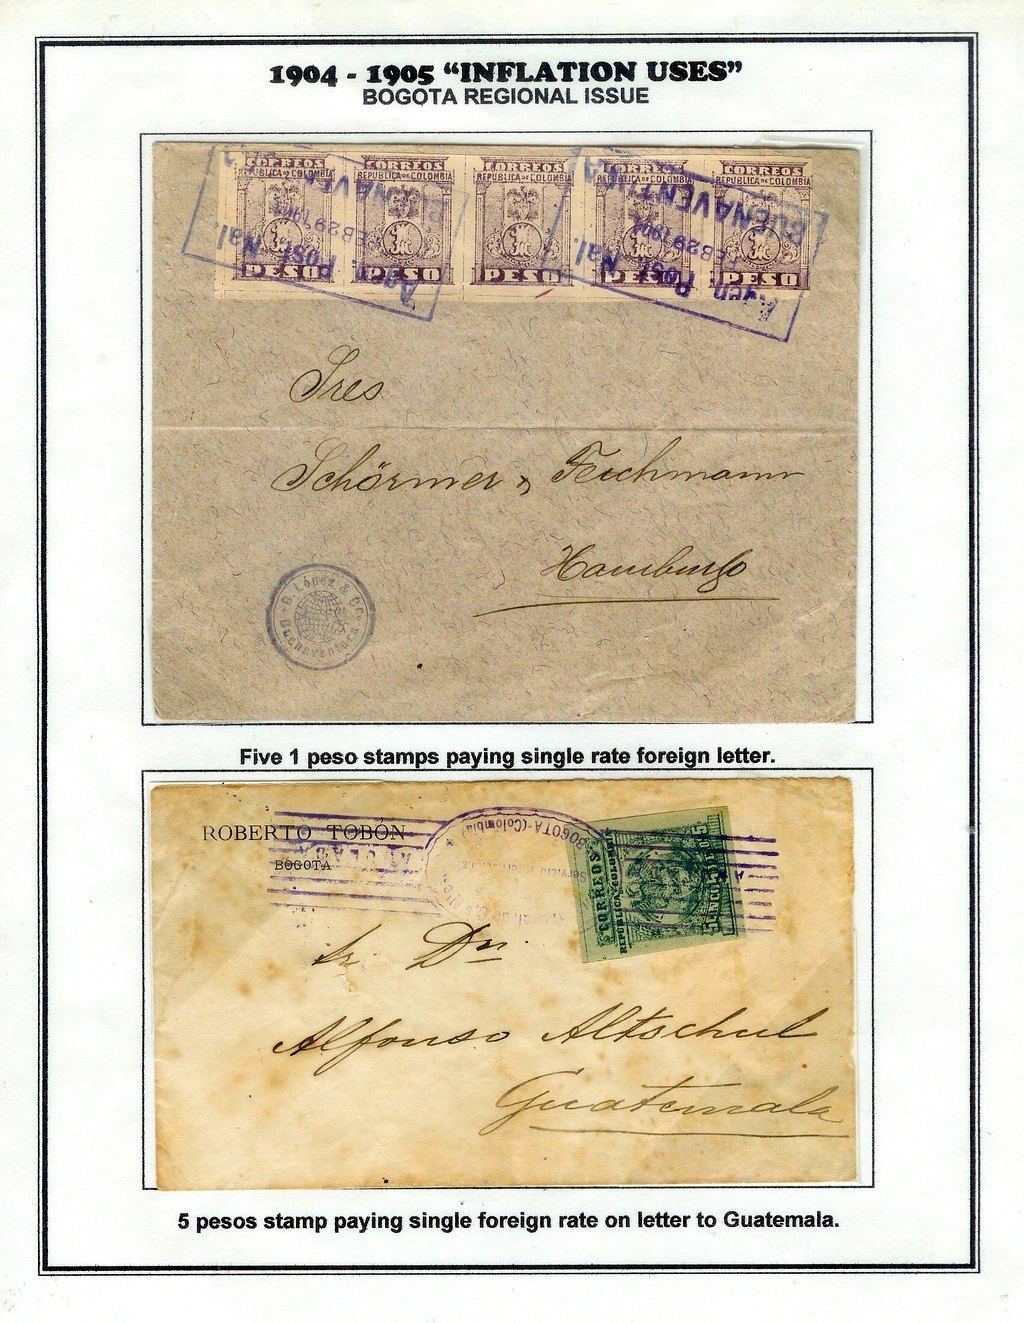 1904 - 1905 “INFLATION USES”
BOGOTA REGIONAL ISSUE
CORREOS CORREOS CORREOS CORREOS CORREOS
REPUBLICA DE COLOMBIA REPUBLICA DE COLOMBIA REPUBLICA DE COLOMBIA REPUBLICA DE COLOMBIA REPUBLICA DE COLOMBIA
PESO PESO PESO PESO PESO
Agen Post Nal.
FEB 29 1904
BUENAVENTURA
Agen Post Nal.
FEB 29 1904
BUENAVENTURA
Sres
Schörmer & Teichmann
Hamburgo
B. López & Co.
Buenaventura
Five 1 peso stamps paying single rate foreign letter.
ROBERTO TOBÓN
BOGOTA
BOGOTA-(Colombia)
Servicio
CORREOS
REPUBLICA DE COLOMBIA
5 CINCO PESOS 5
Sr. Dn.
Alfonso Altschul
Guatemala
5 pesos stamp paying single foreign rate on letter to Guatemala.